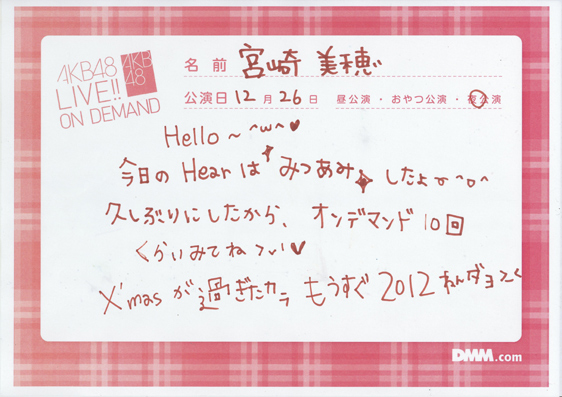 AKB48
LIVE!!
ON DEMAND
AKB
48
名前 宮崎 美穂
公演日 12月26日 昼公演・おやつ公演・夜公演
Hello～ ^w^♥
今日の Hearは みつあみ したよ
久しぶりにしたから、オンデマンド10回
くらいみてねっ♥
X'mas が過ぎたカラ もうすぐ 2012 ねんダヨ
DMM.com